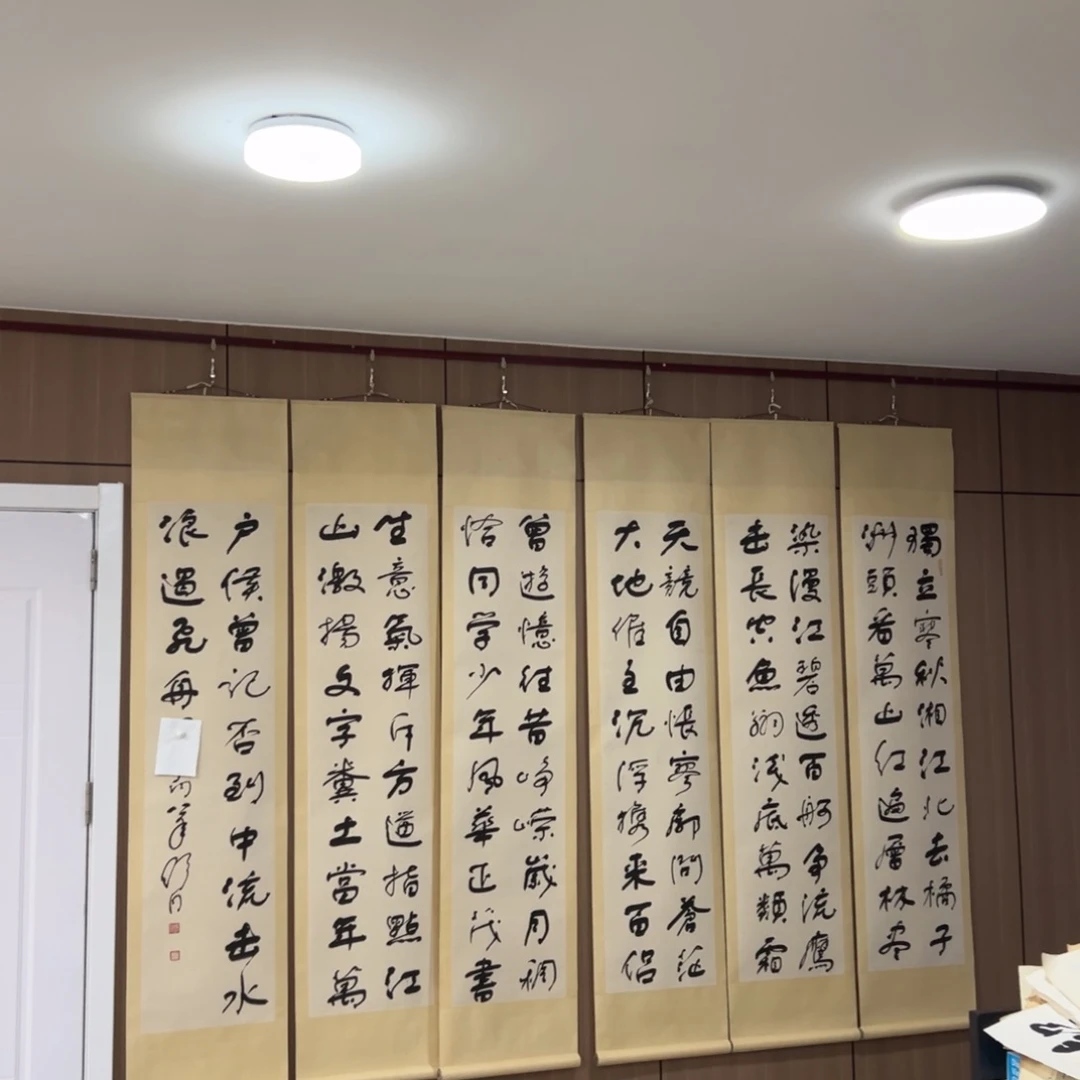 獨立寒秋湘江北去橘子
洲頭看萬山红遍層林盡
染漫江碧透百舸争流鷹
击長空魚翔浅底萬類霜
天競自由悵寥廓問蒼茫
大地誰主沉浮携来百侣
曾遊憶往昔崢嶸歲月稠
恰同学少年風華正茂書
生意氣揮斥方遒指點江
山激揚文字糞土當年萬
户侯曾记否到中流击水
浪遏飛舟